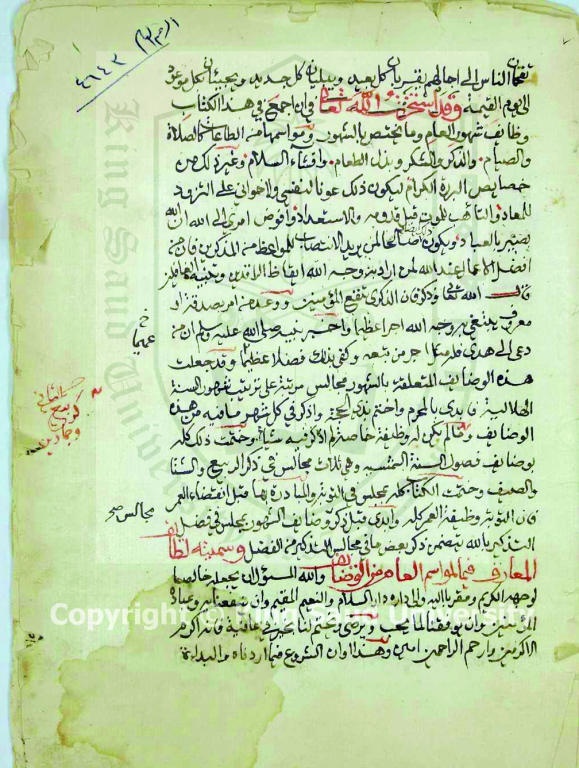 الرقم ٣/م
٤٦٤٣
يقمان الناس الى اجالهم يقربان كل بعيد ويبليان كل جديد ويجيئان بكل موعود
الى يوم القيمة وقد استخرت الله تعالى في ان اجمع في هذا الكتاب
وظايف شهور العام وما يختص بالشهور ومواسمها من الطاعات كالصلاة
والصيام والذكر والشكر وبذل الطعام وافشاء السلام وغير ذلك من
خصايص البررة الكرام ليكون ذلك عونا لنفسي ولاخواني على التزود
للمعاد والتأهب للموت قبل قدومه والاستعداد وافوض امري الى الله ان الله
بصير بالعباد ويكون ايضا صالحا لمن يريد الانتصاب للمواعظ من المذكرين فان من
افضل الاعمال عند الله لمن اراد به وجه الله ايقاظ الراقدين وتنبيه الغافلين
قال الله تعالى وذكر فان الذكرى تنفع المؤمنين ووعد من امر بصدقة او
معروف يبتغي به وجه الله اجرا عظيما واخبر نبيه صلى الله عليه وسلم ان من
دعى الى هدى فله مثل اجر من تبعه وكفى بذلك فضلا عظيما وقد جعلت
هذه الوضايف المتعلقة بالشهور مجالس مرتبة على ترتيب شهور السنة
الهلالية فابدى بالمحرم واختم بذي الحجة واذكر في كل شهر ما فيه من هذه
الوضايف وما لم يكن له وظيفة خاصة لم اذكر فيه شيا وختمت ذلك كله
بوضايف فصول السنة الشمسية وهي ثلاث مجالس في ذكر الربيع والشتا
والصيف وختمت الكتاب كله بمجلس في التوبة والمبادرة بها قبل انقضاء العمر
فان التوبة وظيفة العمر كله وابدى قبل ذكر وضايف الشهور بمجلس في فضل
التذكير بالله يتضمن ذكر بعض ما في مجالس التذكير من الفضل وسميته لطايف
المعارف فيما لمواسم العام من الوضايف والله المسؤل ان يجعله خالصا
لوجهه الكريم ومقربا اليه والى داره دار السلام والنعيم المقيم وان ينفعنا به وعباده
المؤمنين وان يوفقنا لما يحب ويرضى ويختم لنا بخير في عافية فانه اكرم
الاكرمين وارحم الراحمين امين وهذا اوان الشروع فيما اردناه والبداءة
مجالس صح
King Saud University
Copyright © King Saud University